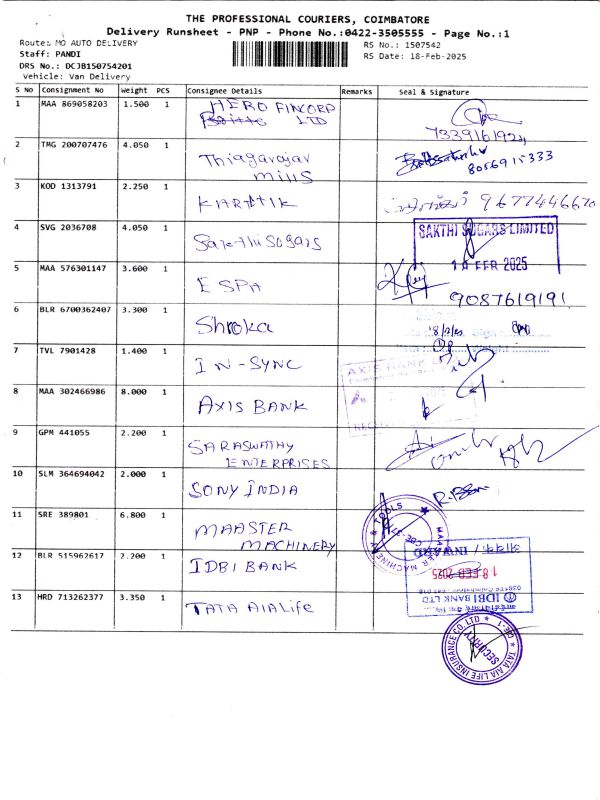 THE PROFESSIONAL COURIERS, COIMBATORE
Delivery Runsheet - PNP - Phone No.:0422-3505555 - Page No.:1
Route: MO AUTO DELIVERY
RS No.: 1507542
Staff: PANDI
RS Date: 18-Feb-2025
DRS No.: DCJB150754201
Vehicle: Van Delivery
S No Consignment No Weight PCS Consignee Details Remarks Seal & Signature
1 MAA 869058203 1.500 1 HERO FINCORP
LTD
7339161921
2 TMG 200707476 4.050 1 Thiagarajar
mills
8056915333
3 KOD 1313791 2.250 1 KARTTIK 9677446670
4 SVG 2036708 4.050 1 Sakthi Sugars SAKTHI SUGARS LIMITED
FEB 2025
5 MAA 576301147 3.600 1 ESPA
9087619191
6 BLR 6700362407 3.300 1 Shroka
Sign
7 TVL 7901428 1.400 1 IN-SYNC
AXIS BANK
8 MAA 302466986 8.000 1 AXIS BANK
9 GPM 441055 2.200 1 SARASWATHY
ENTERPRISES
10 SLM 364694042 2.000 1 SONY INDIA
11 SRE 389801 6.800 1 MAASTER
MACHINERY
MAASTER MACHINERY & TOOLS
12 BLR 515962617 2.200 1 IDBI BANK
INWARD
18 FEB 2025
IDBI BANK LTD
13 HRD 713262377 3.350 1 TATA AIA Life
TATA AIA LIFE INSURANCE CO. LTD
SECURITY